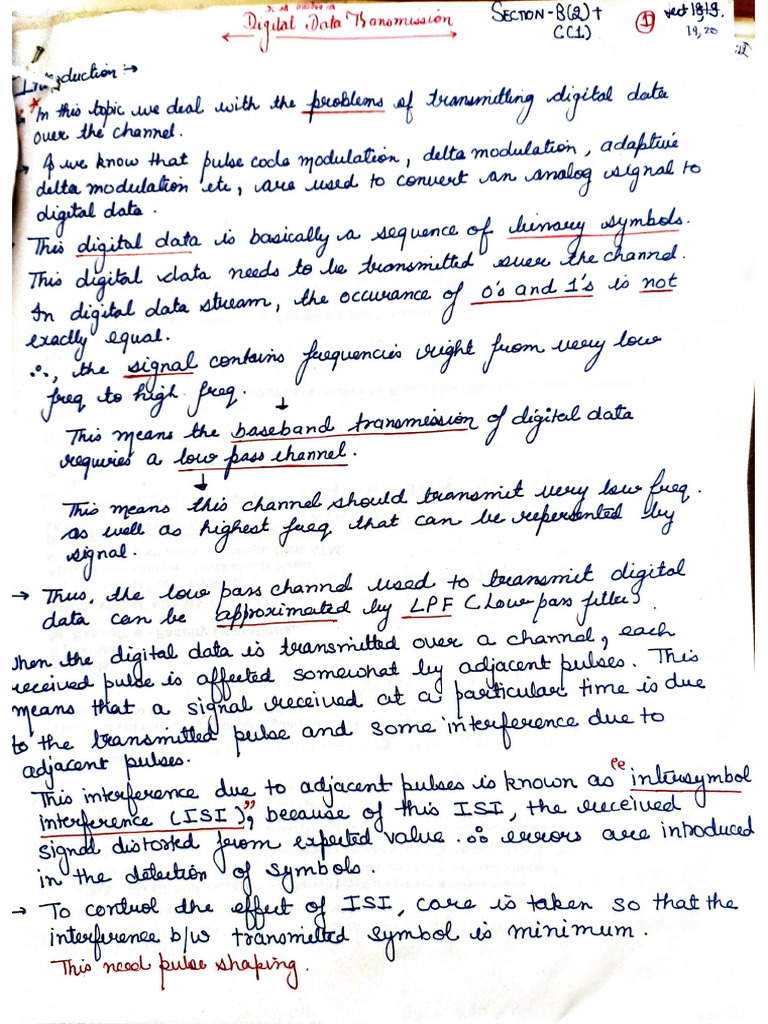 Digital Data Transmission
SECTION-B(2)+
C(1)
1
19,20
Introduction :→
In this topic we deal with the problems of transmitting digital data
over the channel.
→ If we know that pulse code modulation, delta modulation, adaptive
delta modulation etc, are used to convert an analog signal to
digital data.
This digital data is basically a sequence of binary symbols.
This digital data needs to be transmitted over the channel.
In digital data stream, the occurance of 0's and 1's is not
exactly equal.
∴, the signal contains frequencies right from very low
freq to high freq.
↓
This means the baseband transmission of digital data
requries a low pass channel.
↓
This means this channel should transmit very low freq.
as well as highest freq that can be repersented by
signal.
→ Thus, the low pass channel used to transmit digital
data can be approximated by LPF (Low pass filter).
When the digital data is transmitted over a channel, each
received pulse is affected somewhat by adjacent pulses. This
means that a signal received at a particular time is due
to the transmitted pulse and some interference due to
adjacent pulses.
This interference due to adjacent pulses is known as "intersymbol
interference (ISI)", because of this ISI, the received
signal distorted from expected value. ∴ errors are introduced
in the detection of symbols.
→ To control the effect of ISI, care is taken so that the
interference b/w transmitted symbol is minimum.
This need pulse shaping.